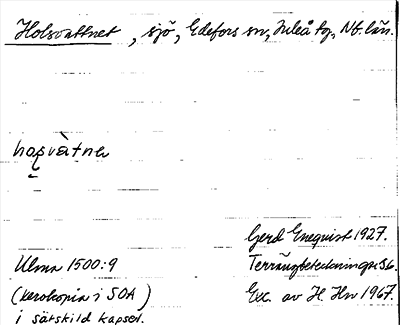 Holsvattnet, sjö, Edefors sn, Luleå tg, Nb. län.
hoḷsvàtnə
Gerd Enequist 1927.
Ulma 1500:9 Terrängbeteckningar s. 36.
(xerokopia i SOA) Exc. av H Hn 1967.
i särskild kapsel.